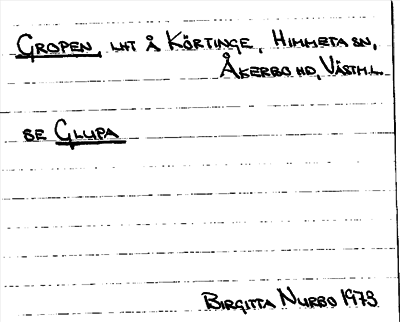 GROPEN, LHT Å KÖRTINGE, HIMMETA SN,
ÅKERBO HD, VÄSTM.L.
SE GLUPA
BIRGITTA NURBO 1973